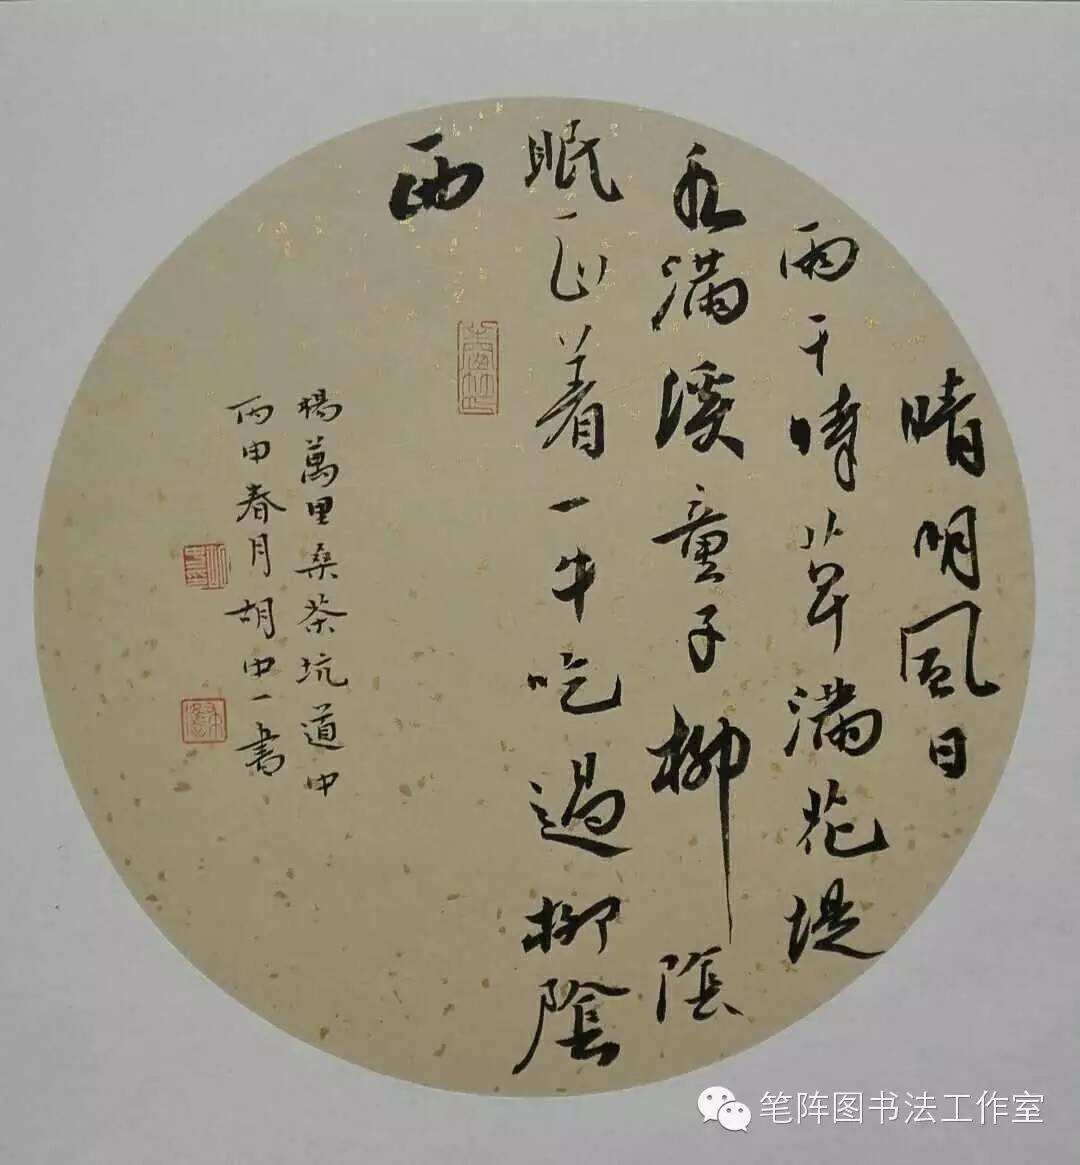 晴明風日
雨干時草滿花堤
水滿溪童子柳陰
眠正着一牛吃過柳陰
西
楊萬里桑茶坑道中
丙申春月胡中一書
笔阵图书法工作室